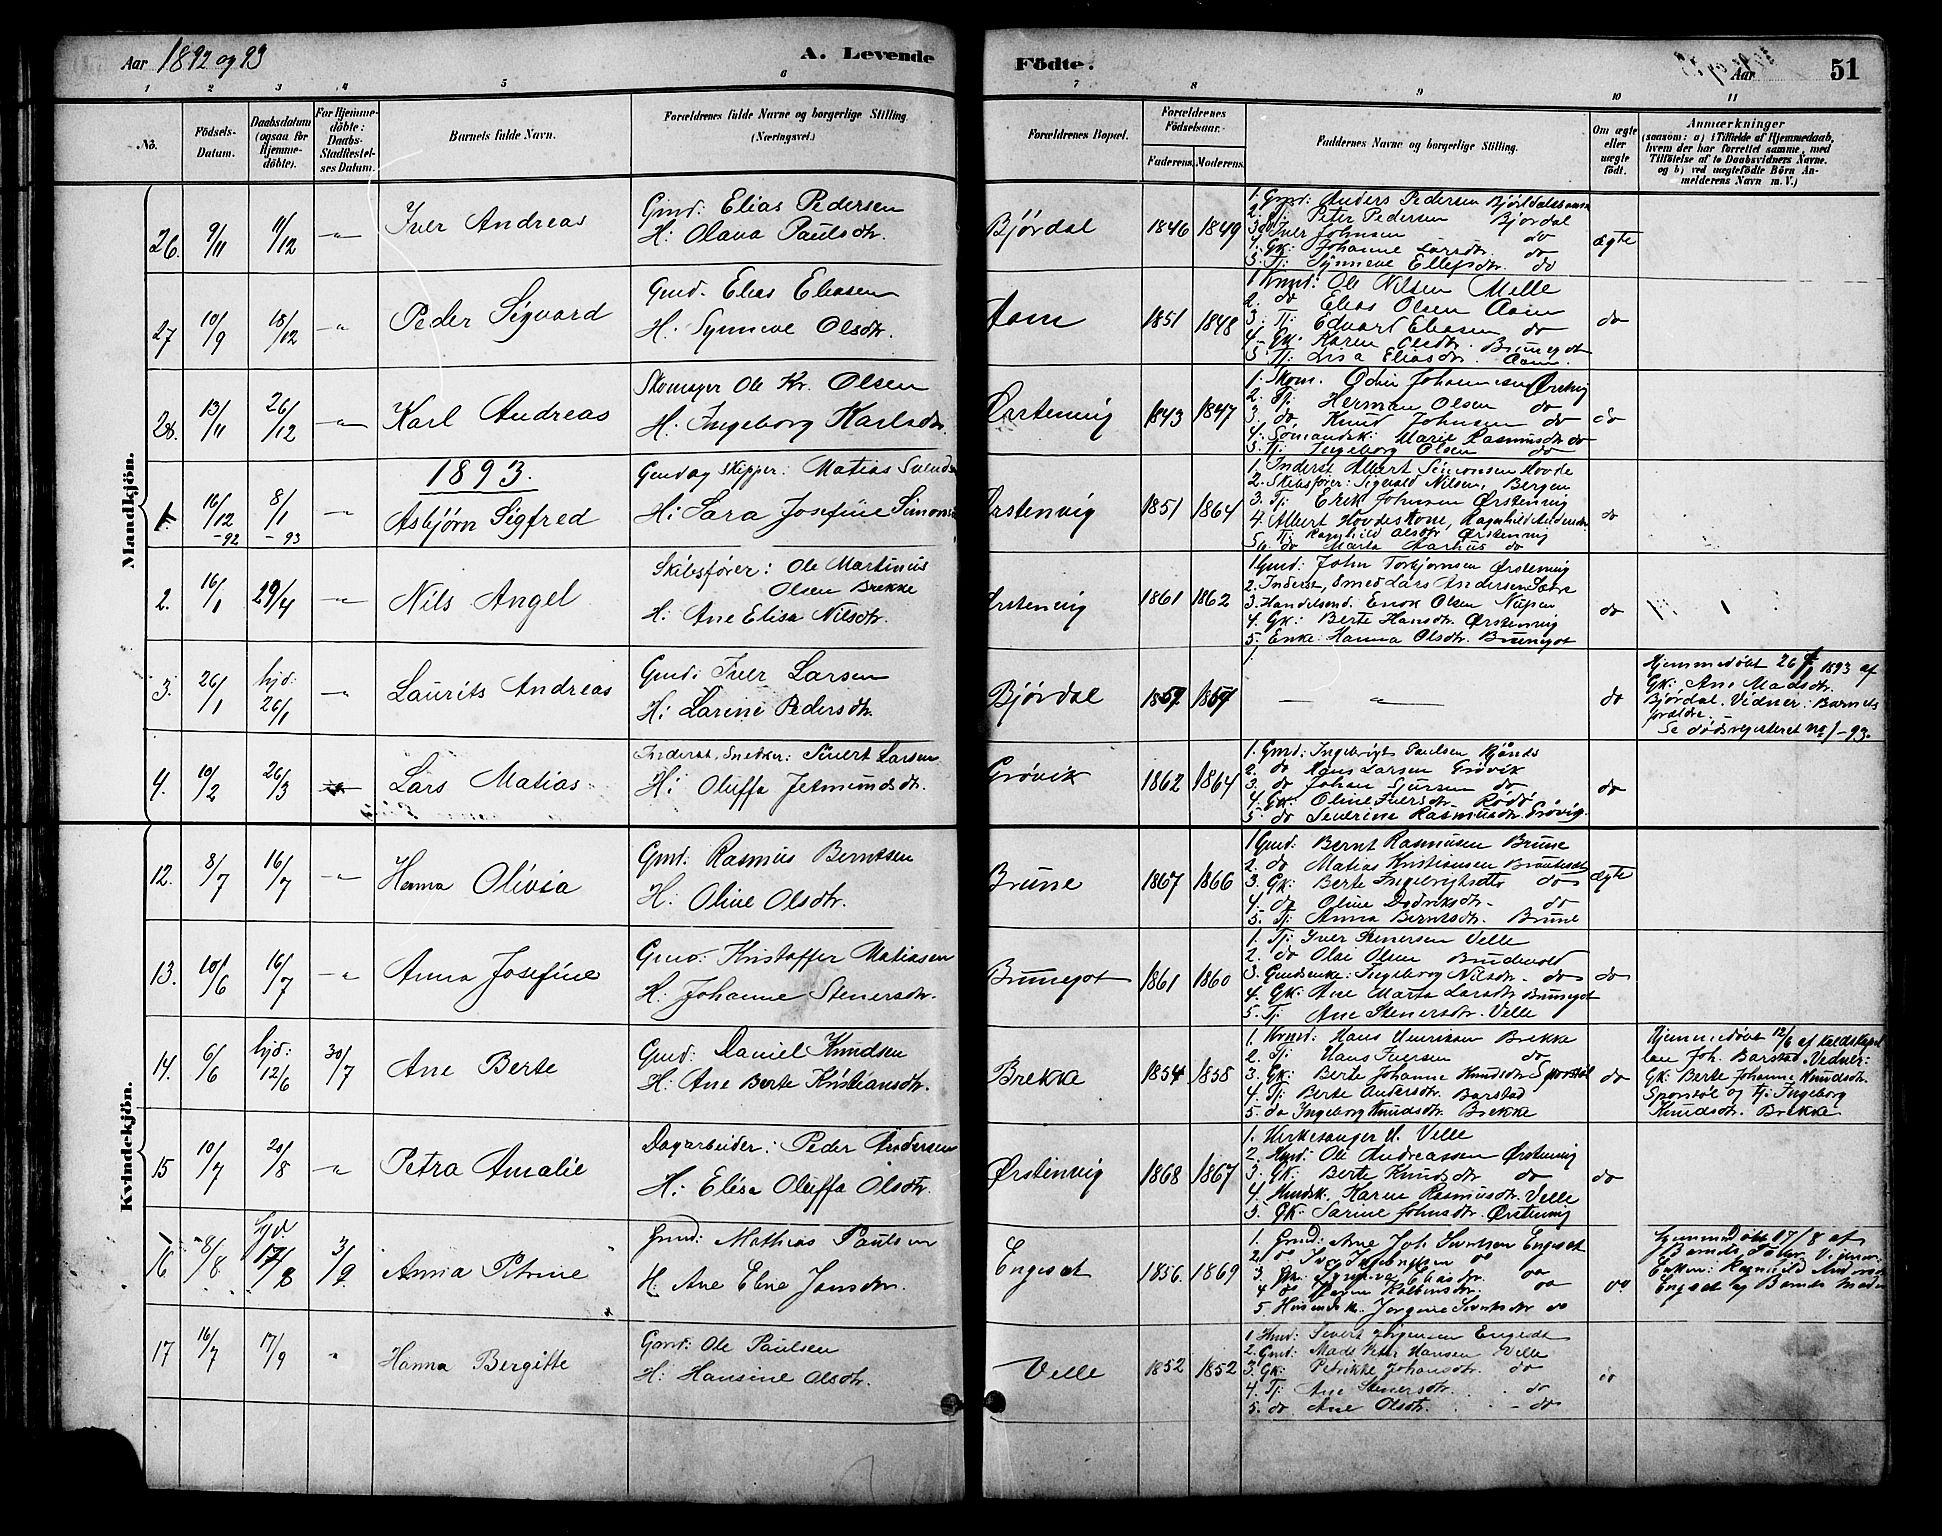 Aar 1892 og 93
A. Levende Födte.
Aar 51
1 2 3 4 5 6 7 8 9 10 11
No.
Födsels-Datum.
Daabsdatum (ogsaa for Hjemme-döbte).
For Hjemme-döbte: Daabs-Stadfæstel-ses Datum.
Barnets fulde Navn.
Forældrenes fulde Navne og borgerlige Stilling. (Næringsvei.)
Forældrenes Bopæl.
Forældrenes Födselsaar.
Faderens. Moderens.
Faddernes Navne og borgerlige Stilling.
Om ægte eller uægte födt.
Anmærkninger
(saasom: a) i Tilfælde af Hjemmedaab,
hvem der har forrettet samme, med
Tilföielse af to Daabsvidners Navne.
og b) ved uægtefödte Börn An-
melderens Navn m. V.)
Mandkjön.
26. 9/11 11/12 -"- Iver Andreas
Gmd. Elias Pedersen
H: Olava Paulsdtr.
Bjørdal 1846 1849
1. Gmd: Anders Pedersen
2. Tj: Peter Pedersen Bjørdal
3. Iver Johnsen do
4. Gk: Johanne Larsdtr. do
5. Tj: Synneve Ellefsdtr. do
ægte
27 10/9 18/12 -"- Peder Sigvard
Gmd. Elias Eliasen
H: Synneve Olsdtr.
Aam 1851 1848
1 Kmd: Ole Nilsen Melle
2. do Elias Olsen Aam
3. Tj: Edvart Eliasen do
4. Gk: Karen Olsdtr. Brunegot
5. Tj: Lisa Eliasdtr. Aam.
do
28. 13/11 26/12 -"- Karl Andreas
Skomager Ole Kr. Olsen
H: Ingeborg Karlsdtr.
Ørstenvig 1843 1847
1. Skom. Odin Johannesen Ørstenvig
2. Tj: Herman Olsen do
3. do Knud Johnsen do
4. Sømandsk: Marie Rasmusdtr do
5. Tj: Ingeborg Olsen do
do
1893.
1. 16/12 -92 8/1 -93 -"- Asbjørn Sigfred
Gmd og Skipper: Matias Svends
H: Sara Josefine Simons
Ørstenvig 1851 1864
1. Inderst Albert Simonsen Hovde
2. Skibsfører: Sigvald Nilsen, Bergen
3. Tj: Erik Johnsen Ørstenvig
4. Albert Hovdes Kone, Ragnhild
5. Tj: Ragnhild Olsdtr Ørstenvig
6. do Marta Aarhus do
do
2. 16/1 29/4 -"- Nils Angel
Skibsfører: Ole Martinius
Olsen Brekke
H: Ane Elisa Nilsdtr.
Ørstenvig 1861 1862
1 Gmd: John Torbjørnsen Ørstenvig
2. Inderst, Smed Lars Andersen
3. Handelsmd. Enok Olsen Nupen
4. Gk: Berte Hansdtr. Ørstenvig
5. Enke: Hanna Olsdtr. Brunegot
do
3. 26/1 hjd: 26/1 -"- Laurits Andreas
Gmd: Iver Larsen
H: Larine Pedersdtr.
Bjørdal 1857 1857
1.
— -"- —
do
Hjemmedøbt 26/1 1893 af
Gk: Ane Madsdtr.
Bjørdal. Vidner: Barnets
forældre.
Se dødsregisteret no 1-93.
4. 10/2 26/3 Lars Matias
Inderst, Snedker: Sivert Larsen
H: Oluffa Jetmundsdtr.
Grøvik 1862 1864
1. Gmd: Ingebrigt Paulsen
2. do Hans Larsen Grøvik
3. do Johan Sjursen do
4. Gk: Oline Iversdtr. Rødø
5. do Severine Rasmusdtr. Grøvig.
do
Kvindekjön.
12. 8/7 16/7 -"- Hanna Olivia
Gmd. Rasmus Berntsen
H: Oline Olsdtr.
Brune 1867 1866
1 Gmd: Bernt Rasmusen Brune
2. do Matias Kristiansen
3. Gk: Berte Ingebrigtsdtr do
4. do Oline Dodriksdtr. do
5. Tj: Anna Berntsdtr. Brune
ægte
13. 10/6 16/7 -"- Anna Josefine
Gmd: Kristoffer Matiasen
H: Johanne Stenersdtr.
Brunegot 1861 1860
1. Tj: Iver Stenersen Velle
2. do Olai Olsen Brudevold
3. Gmdsenke: Ingeborg Nilsdtr. do
4. Gk: Ane Marta Larsdtr Brunegot
5. Tj Ane Stenersdtr. Velle
do
14. 6/6 hjd: 12/6 30/7 Ane Berte
Gmd: Daniel Knudsen
H: Ane Berte Kristiansdtr.
Brekke 1854 1858
1. Kmd: Hans Henriksen Brekke
2. Tj: Hans Iversen do
3. Gk: Berte Johanne Knudsdtr Sporstøl
4. Tj: Berte Andersdtr. Barstad
5. do Ingeborg Knudsdtr. Brekke
do
Hjemmedøbt 12/6 af
Joh. Barstad. Vidner:
Gk: Berte Johanne Knudsdtr.
Sporstøl og Tj: Ingeborg
Knudsdtr. Brekke
15 10/7 20/8 -"- Petra Amalie
Dagarbeider: Peder Andersen
H: Elisa Oluffa Olsdtr.
Ørstenvig 1868 1867
1. Kirkesanger Velle
2. Hmd: Ole Andreassen Ørstenvig
3. Gk: Berte Knudsdtr do
4. Hmdsk. Karen Rasmusdtr. Velle
5. Gk: Sarine Johnsdtr. Ørstenvig
do
16 8/8. hjd 17/8 3/9. Anna Petrine
Gmd: Mathias Paulsen
H: Ane Elne Jonsdtr.
Engeset 1856. 1869
1. Gmd: Arne Joh. Engeset
2. do do
3. Gk. do
4. do do
5. Jørgine do
do
Hjemmedøbt 17/8 af
Barnets Fader. Vidner:
Enken: Ragnhild
Engeset og Barnets Moder
17 16/7 17/9 " Hanna Bergitte
Gmd: Ole Paulsen
H: Hansine Olsdtr.
Velle 1852 1852
1. Hmd: Sivert Jørgensen Engeset
2. Gmd: Mads Peter Hansen Velle
3. Gk: Petrikke Johansdtr. do
4. Tj: Ane Stenersdtr. do
5. do Ane Olsdtr. do
do